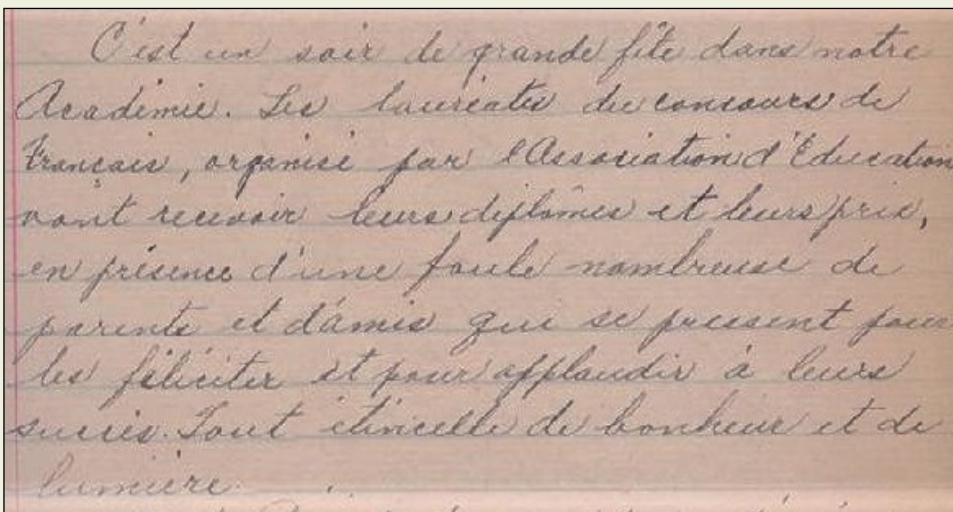 C'est un soir de grande fête dans notre
Académie. Les lauréates du concours de
Français, organisé par l'Association d'Education
vont recevoir leurs diplômes et leurs prix,
en présence d'une foule nombreuse de
parents et d'amis qui se pressent pour
les féliciter et pour applaudir à leurs
succès. Tout étincelle de bonheur et de
lumière.